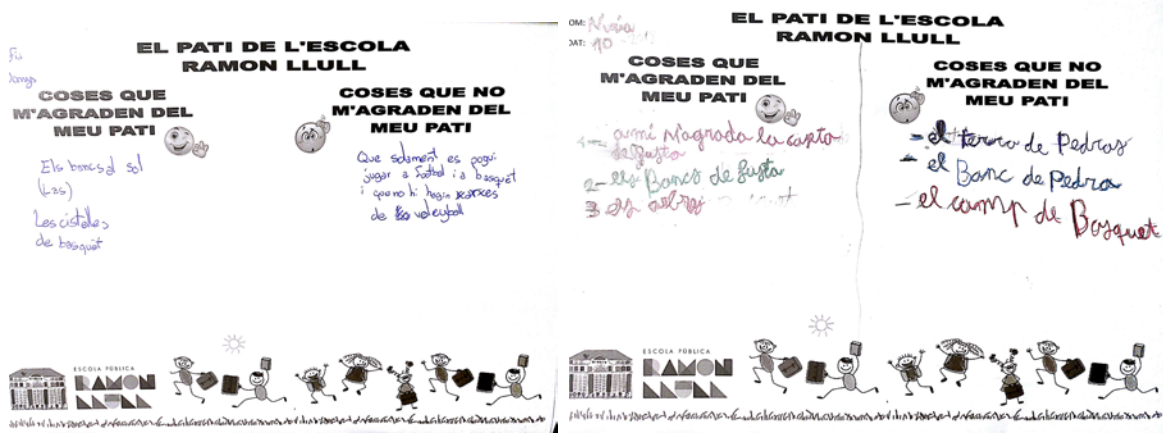 EL PATI DE L'ESCOLA
RAMON LLULL
COSES QUE
M'AGRADEN DEL
MEU PATI
Els bancs al sol
(Las)
Les cistelles
de basquet
COSES QUE NO
M'AGRADEN DEL
MEU PATI
Que solament es pogui
jugar a futbol i a basquet
i que no hi hagin xarxes
de voleyboll
ESCOLA PÚBLICA
RAMON
LLULL
OM: Núria
DAT: 10
EL PATI DE L'ESCOLA
RAMON LLULL
COSES QUE
M'AGRADEN DEL
MEU PATI
a mi m'agrada la
de fusta
2- els Bancs de fusta
3 els
COSES QUE NO
M'AGRADEN DEL
MEU PATI
- el terra de Pedras
- el Banc de Pedra
- el camp de Basquet
ESCOLA PÚBLICA
RAMON
LLULL